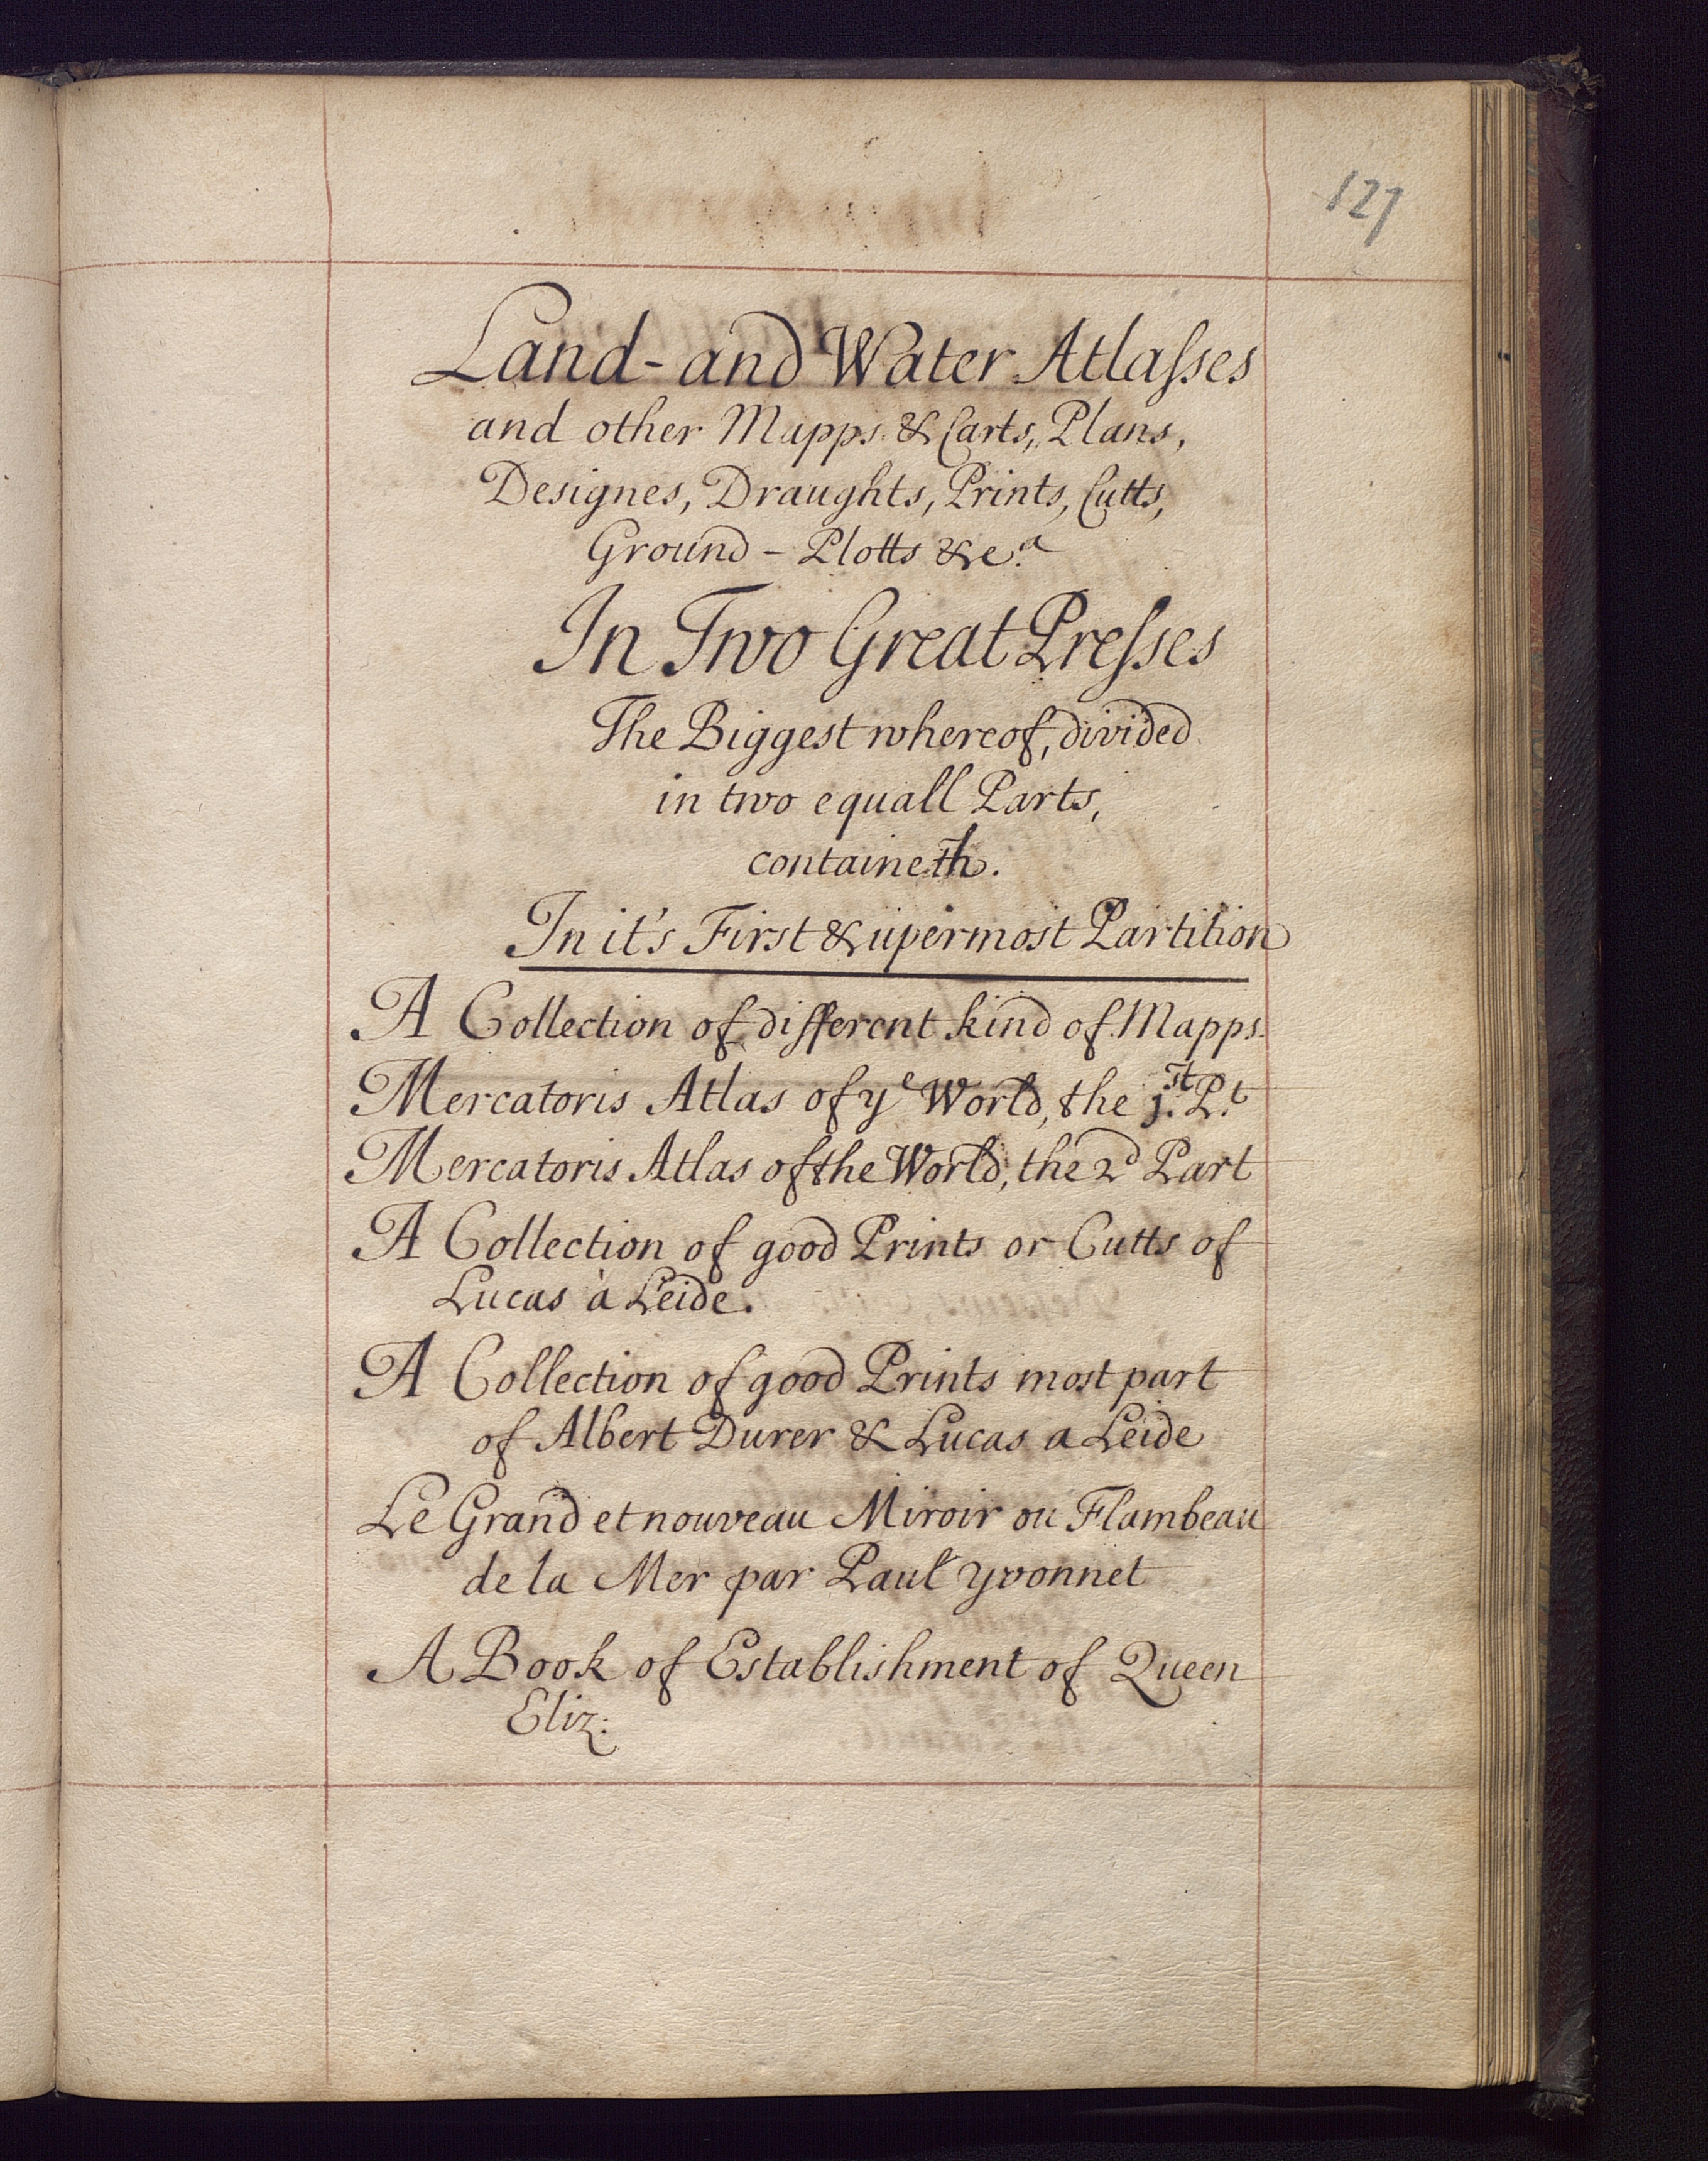 127
Land-and Water Atlaſses
and other Mapps & Carts, Plans,
Designes, Draughts, Prints, Cutts,
Ground - Plotts &c.a
In Two Great Preſses
The Biggest whereof, divided
in two equall Parts,
containeth.
In it's First & upermost Partition
A Collection of different kind of Mapps.
Mercatoris Atlas of ye World, the 1.st P.t
Mercatoris Atlas of the World, the 2d Part
A Collection of good Prints or Cutts of
Lucas à Leide.
A Collection of good Prints most part
of Albert Durer & Lucas a Leide
Le Grand et nouveau Miroir ou Flambeau
de la Mer par Paul yvonnet
A Book of Establishment of Queen
Eliz: